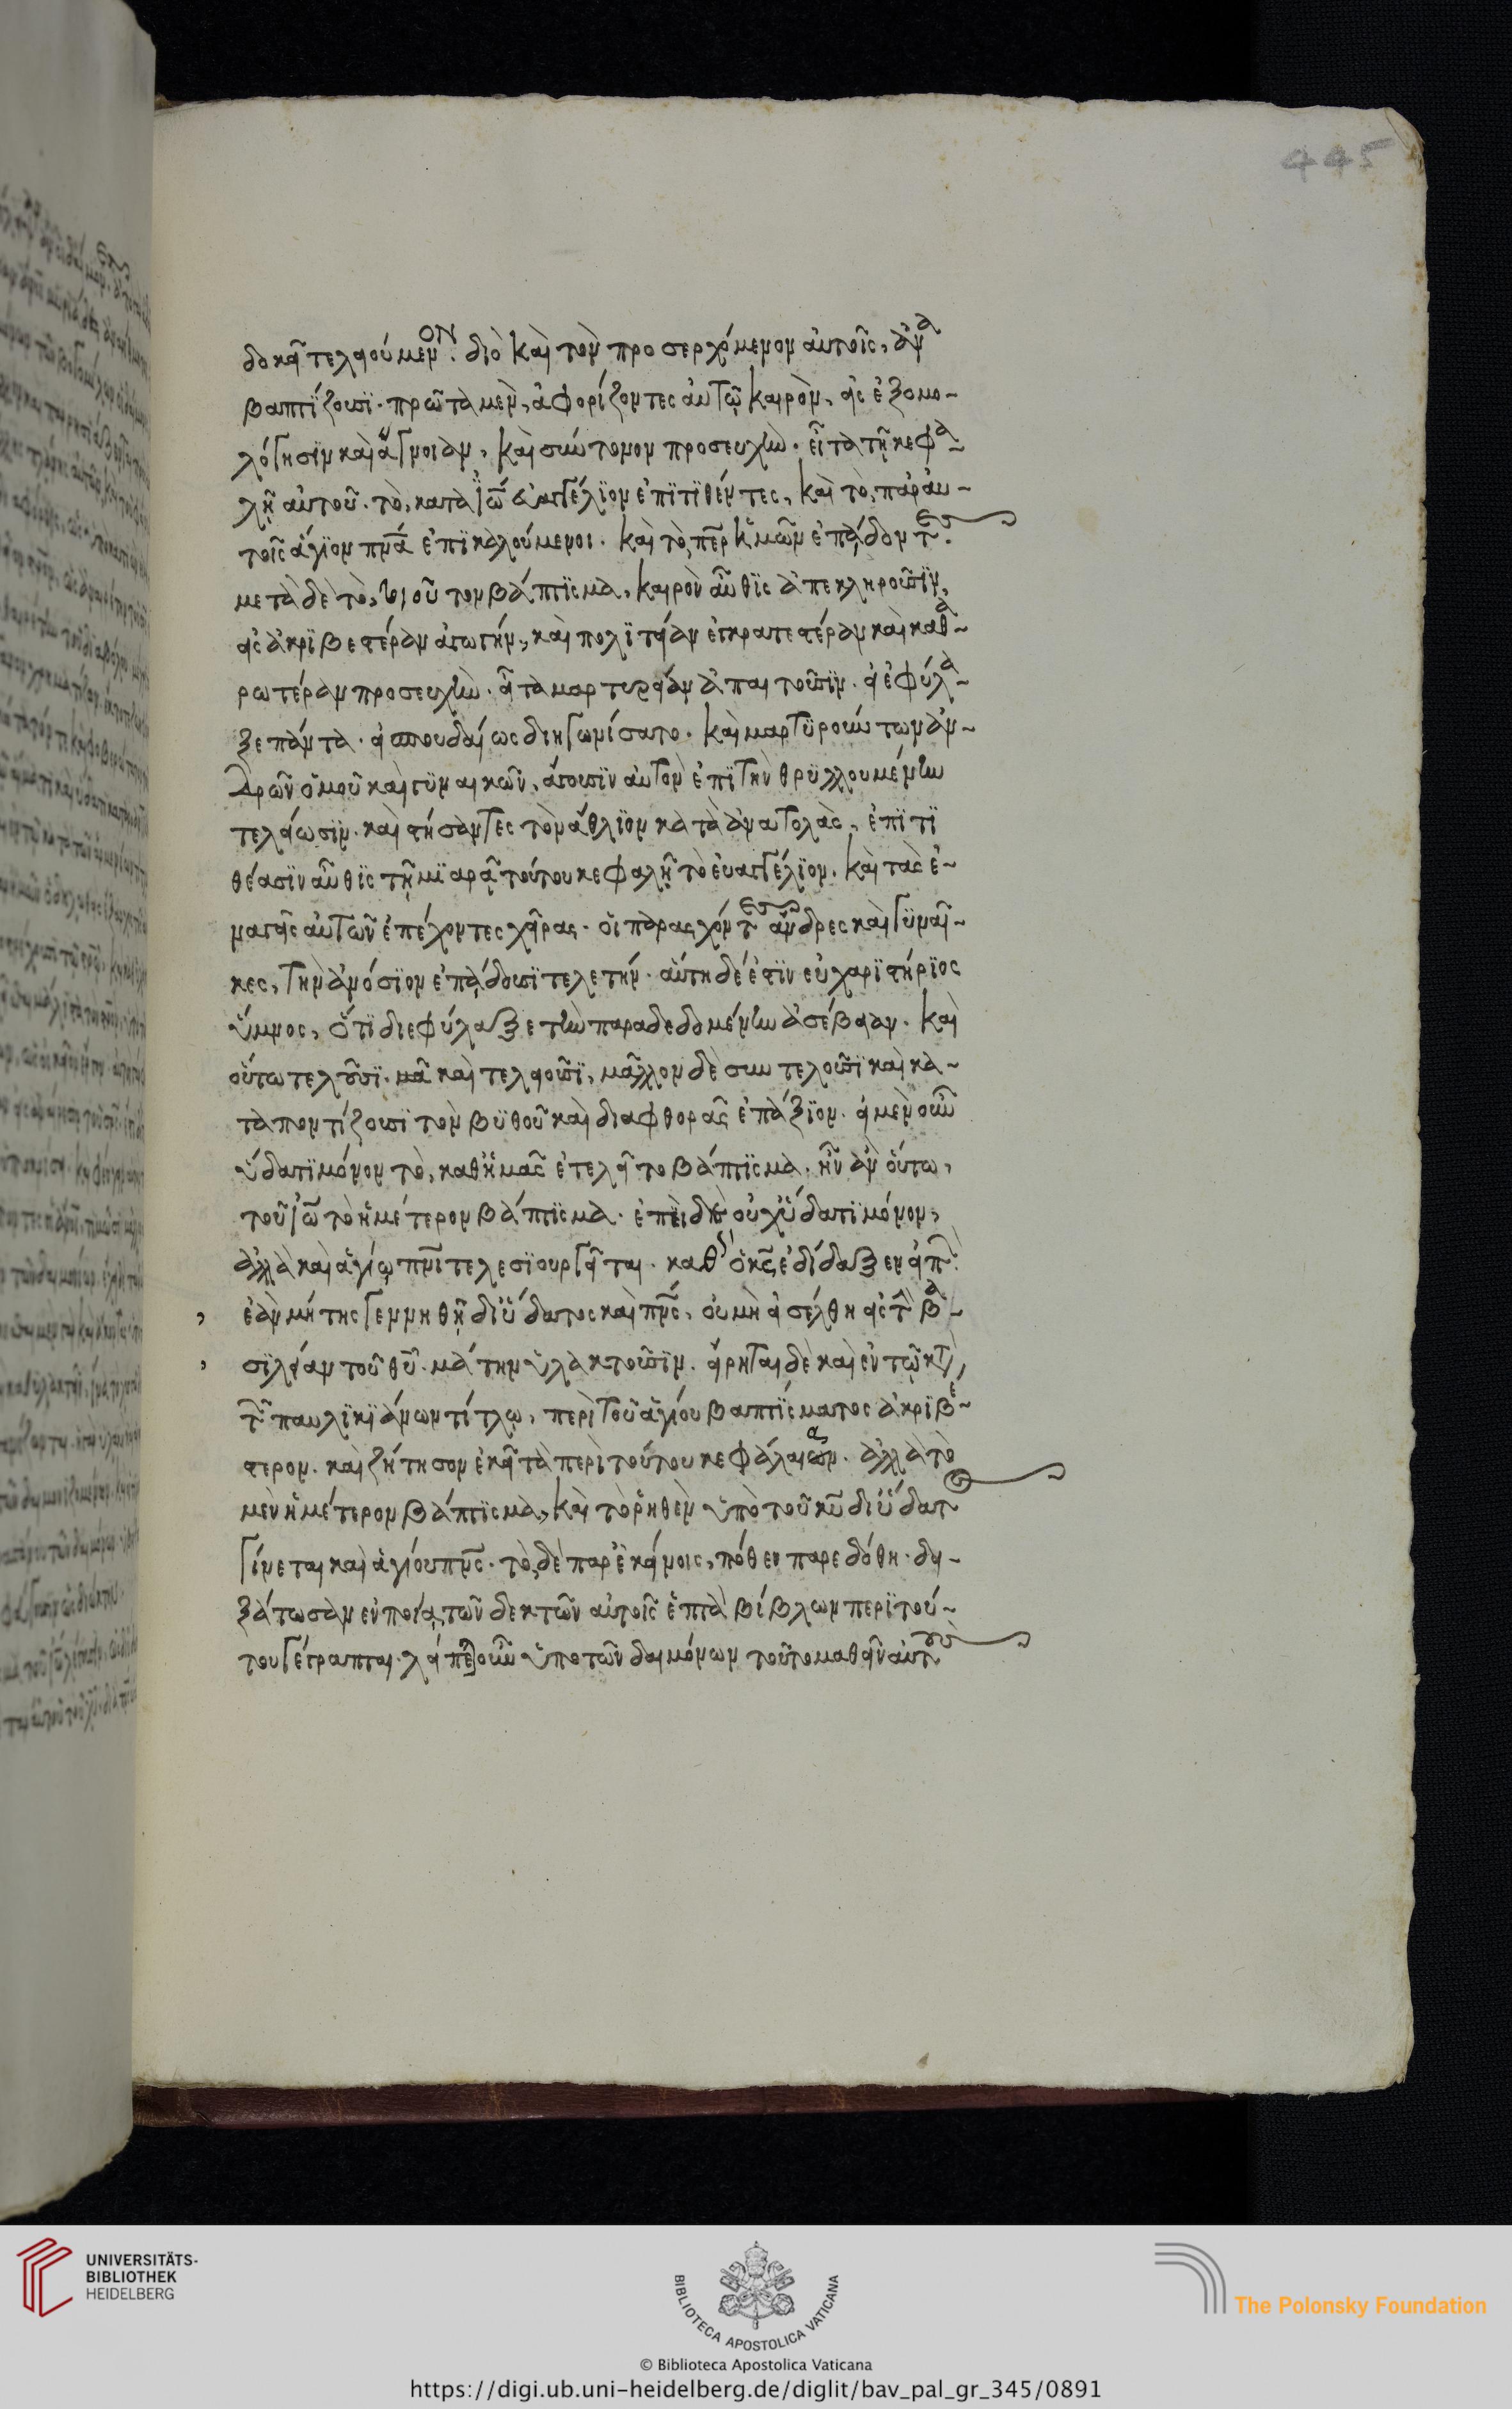 445
δοκεῖ τελειούμενον. διὸ καὶ τὸν προσερχόμενον αὐτοῖς, ἀνα
βαπτίζουσι. πρῶτα μὲν, ἀφορίζοντες αὐτῷ καιρὸν, εἰς ἐξομο-
λόγησιν καὶ ἁγνείαν, καὶ σύντονον προσευχὴν. εἶτα τῇ κεφα-
λῇ αὐτοῦ. τὸ, κατὰ ἰω εὐαγγέλιον ἐπιτιθέντες, καὶ τὸ, παρ' αὐ-
τοῖς ἅγιον πνα ἐπικαλούμενοι. καὶ τὸ πηρ ἡμῶν ἐπᾴδοντες.
μετὰ δὲ τὸ, τοιοῦτον βάπτισμα, καιρὸν αὖθις ἀποκληροῦσιν,
εἰς ἀκριβεστέραν ἀγωγήν, καὶ πολιτείαν ἐγκρατεστέραν καὶ καθα-
ρωτέραν προσευχὴν. εἶτα μαρτυρείαν ἀπαιτοῦσιν. εἰ ἐφύλα-
ξε πάντα. εἰ σπουδαίως διηγωνίσατο. καὶ μαρτυρούντων ἀν-
δρῶν ὁμοῦ καὶ γυναικῶν, ἄγουσιν αὐτὸν ἐπὶ τὴν θρυλλουμένην
τελείωσιν. καὶ στήσαντες τὸν ἄθλιον κατὰ ἀνατολὰς, ἐπιτι
θέασιν αὖθις τῇ μιαρᾷ τούτου κεφαλῇ τὸ εὐαγγέλιον. καὶ τὰς ἐ-
ναγεῖς αὐτῶν ἐπέχοντες χεῖρας. οἱ παρασχόντες ἄνδρες καὶ γυναῖ-
κες, τὴν ἀνόσιον ἐπᾴδουσι τελετήν. αὕτη δέ ἐστιν εὐχαριστήριος
ὕμνος, ὅτι διεφύλαξε τὴν παραδεδομένην ἀσέβειαν. καὶ
οὕτω τελοῦσι. μᾶ καὶ τελειοῦσι, μᾶλλον δὲ συντελοῦσι καὶ κα-
ταποντίζουσι τὸν βυθοῦ καὶ διαφθορᾶς ἐπάξιον. εἰ μὲν οὖν
ὕδατι μόνον τὸ, καθ' ἡμᾶς ἐτελεῖτο βάπτισμα. ἦν ἀν οὕτω,
τοῦ ἰω τὸ ἡμέτερον βάπτισμα. ἐπειδὴ οὐχ ὕδατι μόνον,
ἀλλὰ καὶ ἁγίῳ πνι τελεσιουργεῖται. καθὼς ὁ κς ἐδίδαξεν εἰπ.
ἐὰν μή τις γεννηθῇ δι' ὕδατος καὶ πνς, οὐ μὴ εἰσέλθη εἰς τὴν βα-
σιλείαν τοῦ θυ. μάτην ὑλακτοῦσιν. εἴρηται δὲ καὶ ἐν τῷ κτ,
τῶν παυλικιάνων τίτλῳ, περὶ τοῦ ἁγίου βαπτίσματος ἀκριβέ-
στερον. καὶ ζήτησον ἐκεῖ τὰ περὶ τούτου κεφάλαια. ἀλλὰ τὸ
μὲν ἡμέτερον βάπτισμα, κατὰ τὸ ῥηθὲν ὑπὸ τοῦ κυ δι' ὕδατος
γίνεται καὶ ἁγίου πνς. τὸ δὲ παρ' ἐκείνοις, πόθεν παρεδόθη. δει-
ξάτωσαν ἐν ποίᾳ τῶν δεκτῶν αὐτοῖς ἑπτὰ βίβλων περὶ τού-
του γέγραπται. λείπεται οὖν ὑπὸ τῶν δαιμόνων τοῦτο μαθεῖν αὐτοὺς
UNIVERSITÄTS-
BIBLIOTHEK
HEIDELBERG
BIBLIOTECA APOSTOLICA VATICANA
The Polonsky Foundation
© Biblioteca Apostolica Vaticana
https://digi.ub.uni-heidelberg.de/diglit/bav_pal_gr_345/0891